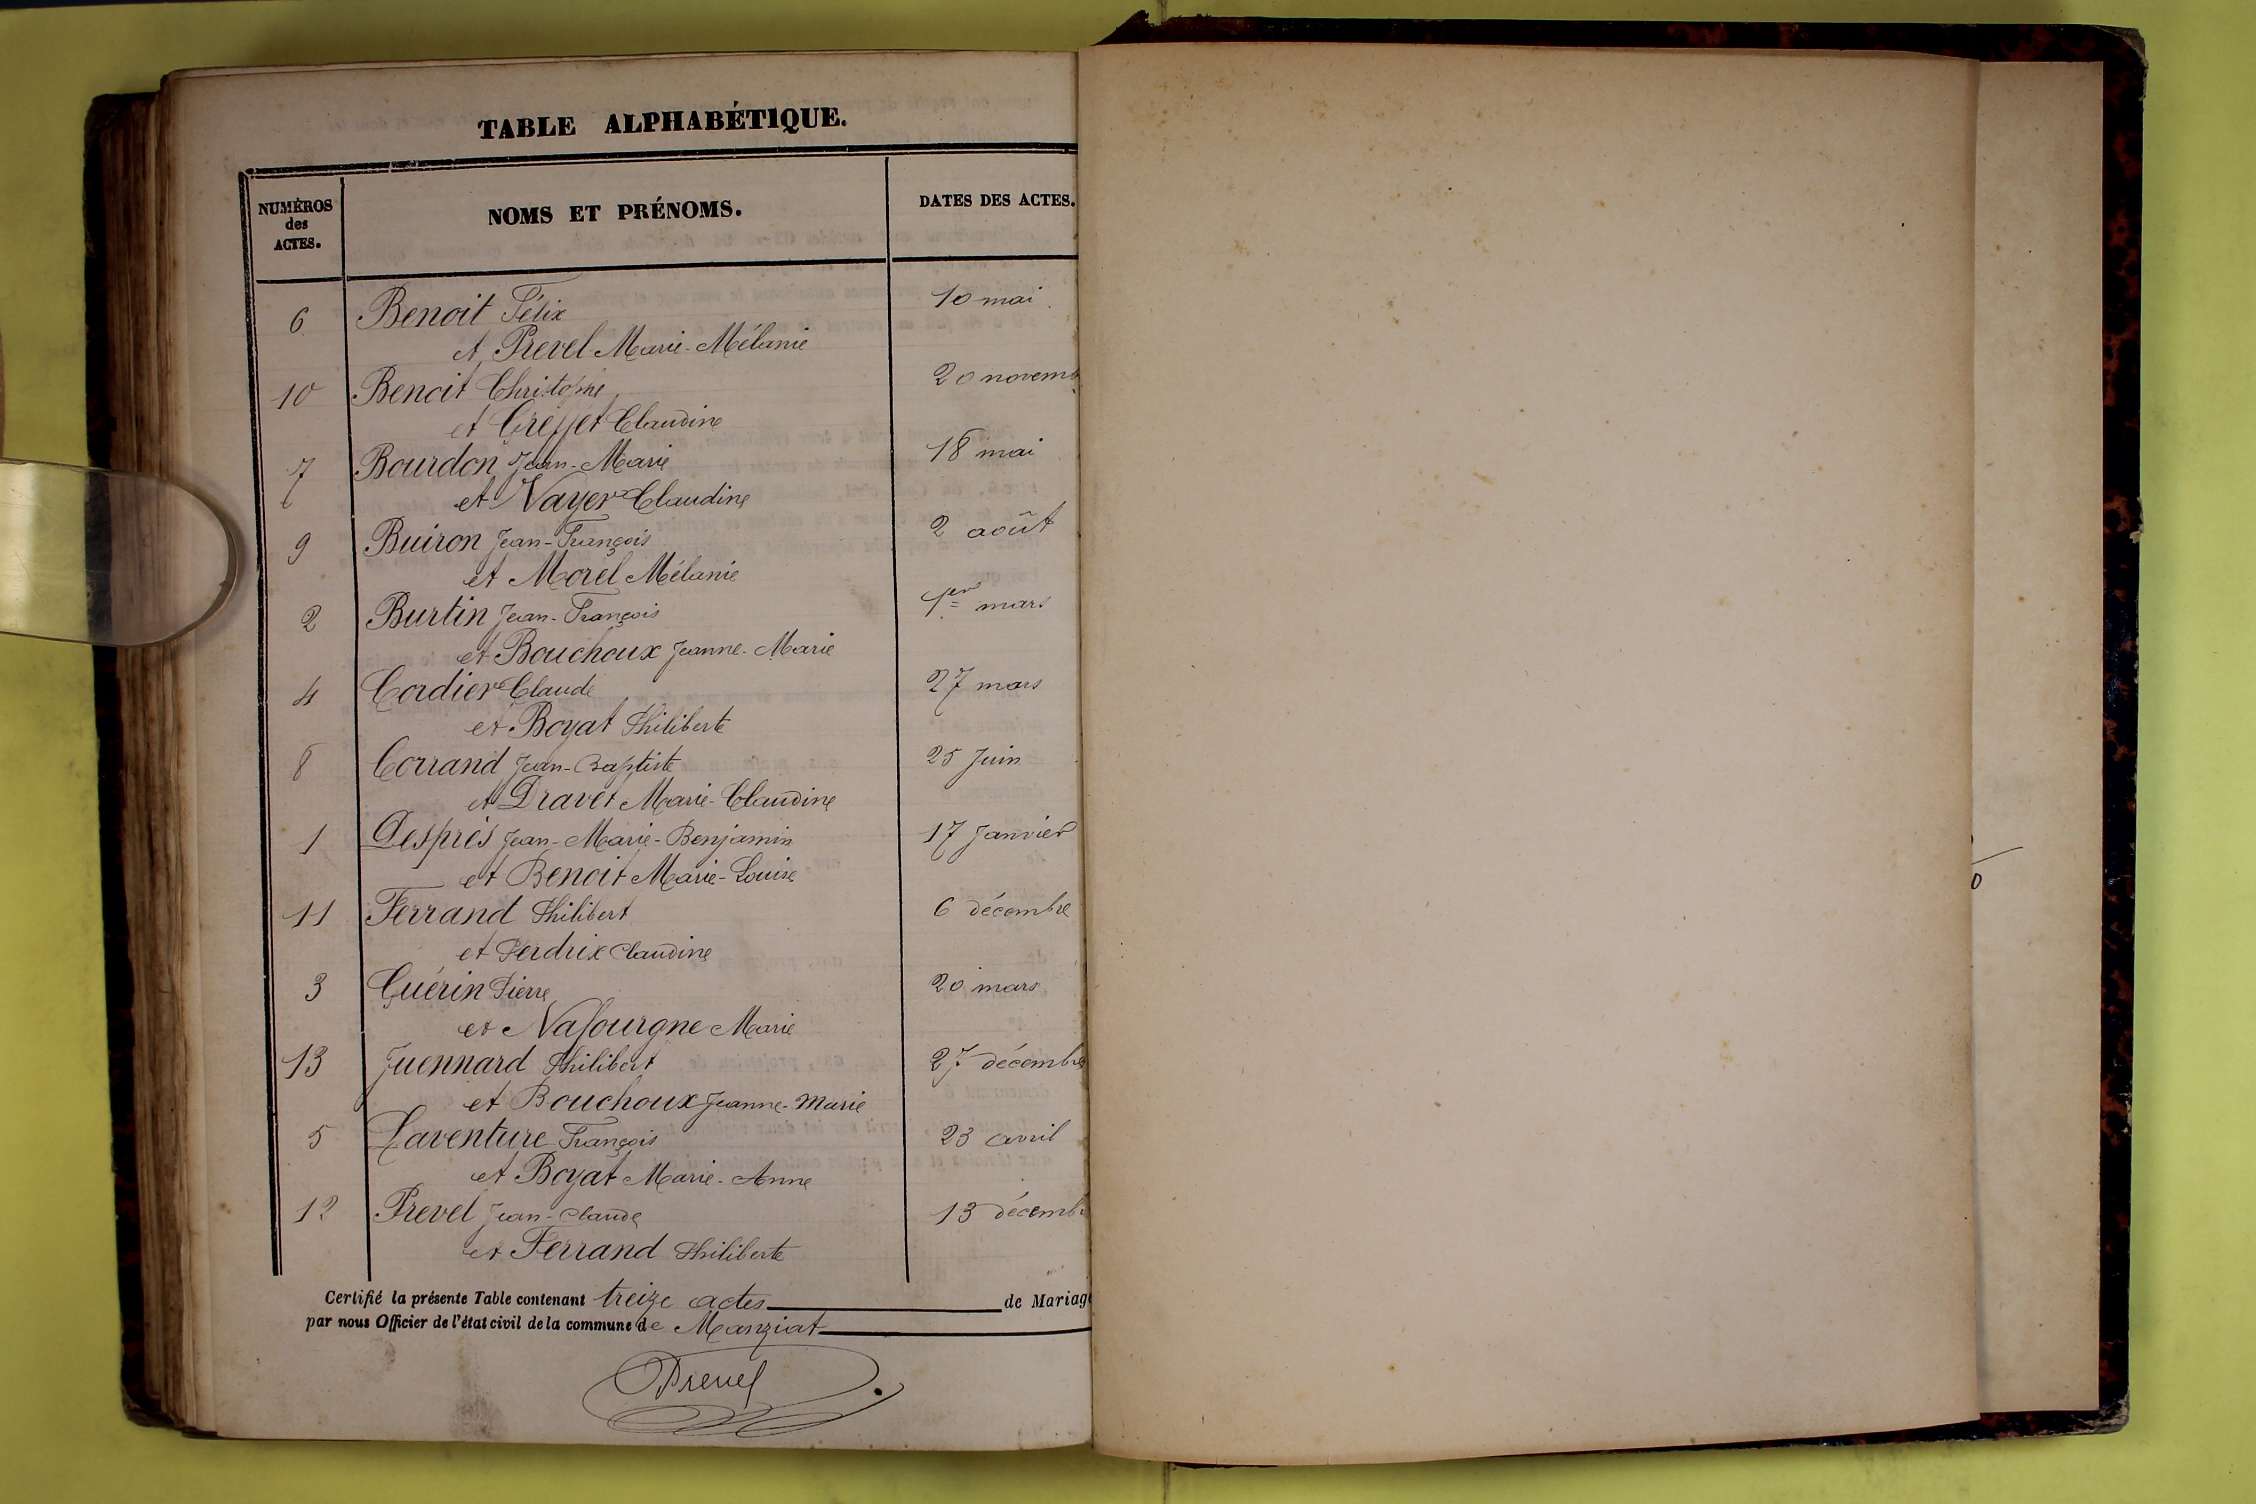 TABLE ALPHABÉTIQUE.
NUMÉROS des ACTES. NOMS ET PRÉNOMS. DATES DES ACTES.
6 Benoit Félix 10 mai
et Prevel Marie-Mélanie
10 Benoit Christophe 20 novemb
et Claudine
7 Bourdon Jean-Marie 18 mai
et Vayer Claudine
9 Buiron Jean-François 2 août
et Morel Mélanie
2 Burtin Jean-François 1er mars
et Bouchoux Jeanne-Marie
4 Cordier Claude 27 mars
et Boyat Philiberte
8 Corrand Jean-Baptiste 25 Juin
et Dravet Marie-Claudine
1 Després Jean-Marie-Benjamin 17 Janvier
et Benoit Marie-Louise
11 Ferrand Philibert 6 décembre
et Perdrix Claudine
3 Guérin Pierre 20 mars
et Marie
13 Juennard Philibert 27 décembre
et Bouchoux Jeanne-Marie
5 Laventure François 23 avril
et Boyat Marie-Anne
12 Prevel Jean-Claude 13 décemb
et Ferrand Philiberte
Certifié la présente Table contenant treize actes de Mariage
par nous Officier de l'état civil de la commune de Manziat
Prevel